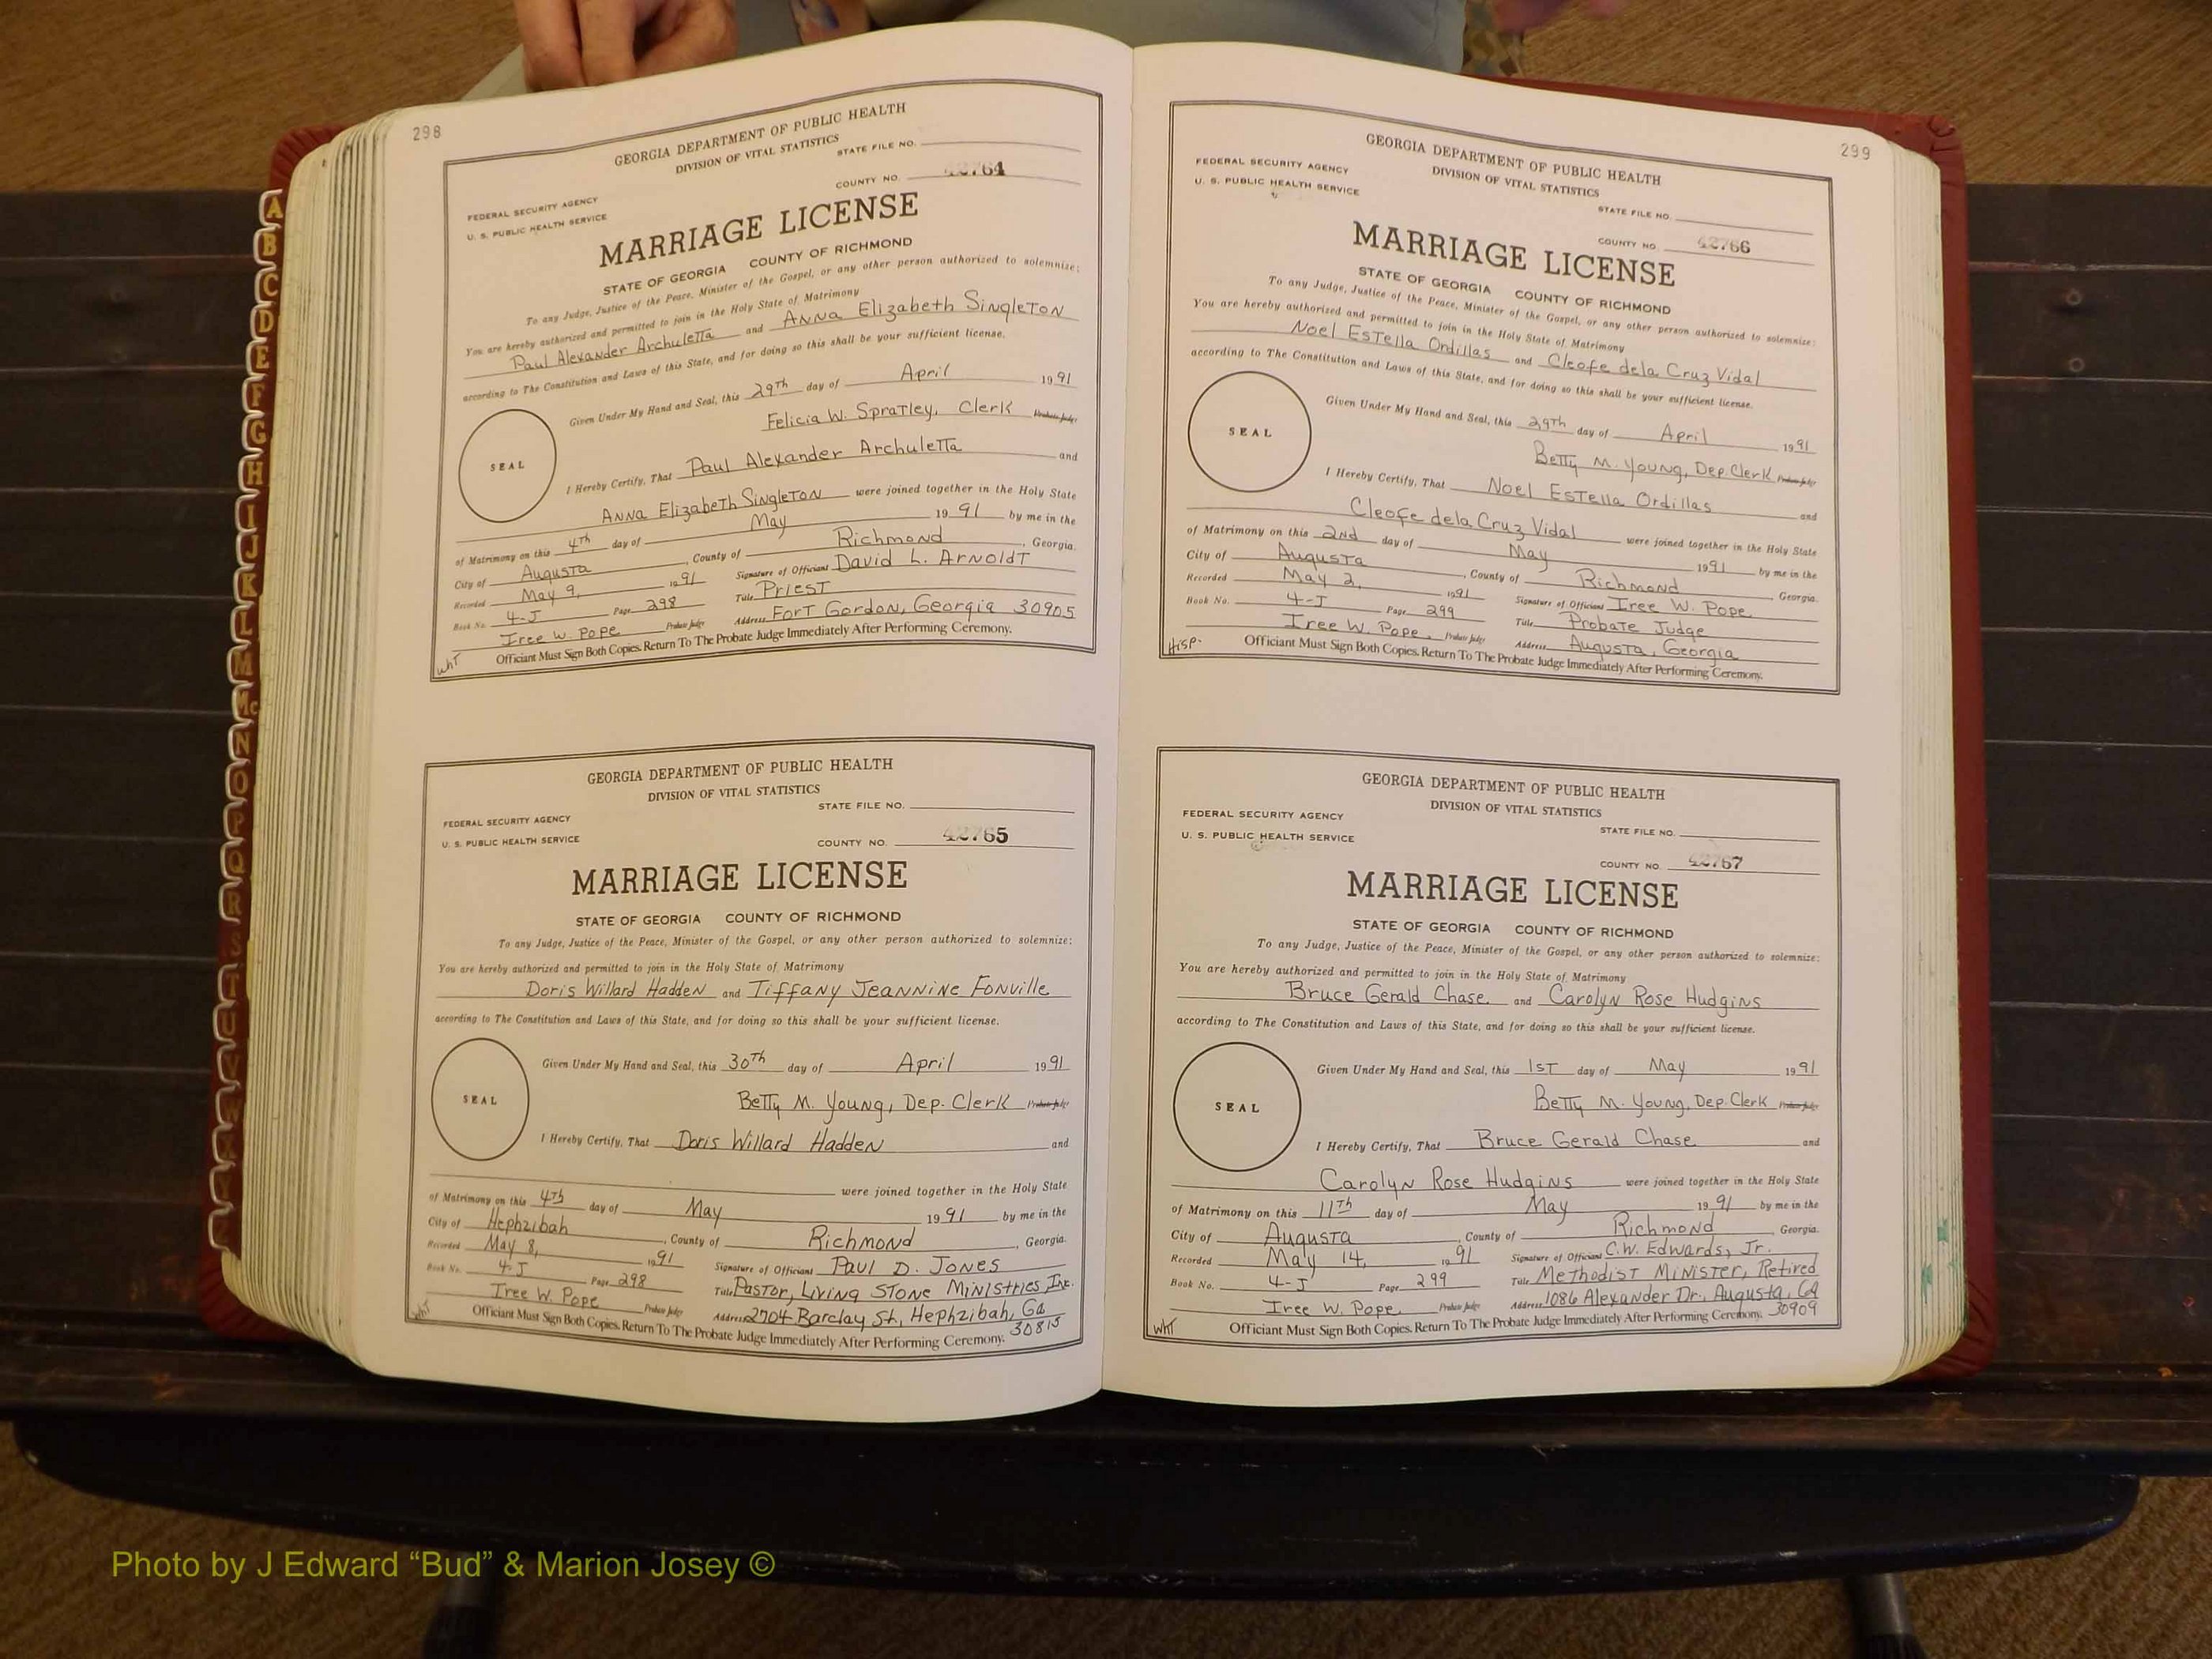 298
GEORGIA DEPARTMENT OF PUBLIC HEALTH
DIVISION OF VITAL STATISTICS
STATE FILE NO.
FEDERAL SECURITY AGENCY
U. S. PUBLIC HEALTH SERVICE
COUNTY NO. 42764
MARRIAGE LICENSE
STATE OF GEORGIA COUNTY OF RICHMOND
To any Judge, Justice of the Peace, Minister of the Gospel, or any other person authorized to solemnize:
You are hereby authorized and permitted to join in the Holy State of Matrimony
Paul Alexander Archuletta and Anna Elizabeth Singleton
according to The Constitution and Laws of this State, and for doing so this shall be your sufficient license.
Given Under My Hand and Seal, this 29th day of April 1991
Felicia W. Spratley, Clerk Probate Judge
SEAL
I Hereby Certify, That Paul Alexander Archuletta and
Anna Elizabeth Singleton were joined together in the Holy State
of Matrimony on this 4th day of May 1991 by me in the
City of Augusta, County of Richmond, Georgia.
Recorded May 9, 1991 Signature of Officiant David L. Arnoldt
Book No. 4-J Page 298 Title Priest
Iree W. Pope Probate Judge Address Fort Gordon, Georgia 30905
Officiant Must Sign Both Copies. Return To The Probate Judge Immediately After Performing Ceremony.
WhT
GEORGIA DEPARTMENT OF PUBLIC HEALTH
DIVISION OF VITAL STATISTICS
STATE FILE NO.
FEDERAL SECURITY AGENCY
U. S. PUBLIC HEALTH SERVICE
COUNTY NO. 42765
MARRIAGE LICENSE
STATE OF GEORGIA COUNTY OF RICHMOND
To any Judge, Justice of the Peace, Minister of the Gospel, or any other person authorized to solemnize:
You are hereby authorized and permitted to join in the Holy State of Matrimony
Doris Willard Hadden and Tiffany Jeannine Fonville
according to The Constitution and Laws of this State, and for doing so this shall be your sufficient license.
Given Under My Hand and Seal, this 30th day of April 1991
Betty M. Young, Dep. Clerk Probate Judge
SEAL
I Hereby Certify, That Doris Willard Hadden and
were joined together in the Holy State
of Matrimony on this 4th day of May 1991 by me in the
City of Hephzibah, County of Richmond, Georgia.
Recorded May 8, 1991 Signature of Officiant Paul D. Jones
Book No. 4-J Page 298 Title Pastor, Living Stone Ministries Inc.
Iree W. Pope Probate Judge Address 2704 Barclay St, Hephzibah, Ga 30815
Officiant Must Sign Both Copies. Return To The Probate Judge Immediately After Performing Ceremony.
WhT
299
GEORGIA DEPARTMENT OF PUBLIC HEALTH
DIVISION OF VITAL STATISTICS
FEDERAL SECURITY AGENCY
U. S. PUBLIC HEALTH SERVICE
STATE FILE NO.
COUNTY NO. 42766
MARRIAGE LICENSE
STATE OF GEORGIA COUNTY OF RICHMOND
To any Judge, Justice of the Peace, Minister of the Gospel, or any other person authorized to solemnize:
You are hereby authorized and permitted to join in the Holy State of Matrimony
Noel Estella Ordillas and Cleofe dela Cruz Vidal
according to The Constitution and Laws of this State, and for doing so this shall be your sufficient license.
Given Under My Hand and Seal, this 29th day of April 1991
Betty M. Young, Dep. Clerk Probate Judge
SEAL
I Hereby Certify, That Noel Estella Ordillas and
Cleofe dela Cruz Vidal were joined together in the Holy State
of Matrimony on this 2nd day of May 1991 by me in the
City of Augusta, County of Richmond, Georgia.
Recorded May 2, 1991 Signature of Officiant Iree W. Pope
Book No. 4-J Page 299 Title Probate Judge
Iree W. Pope Probate Judge Address Augusta, Georgia
Officiant Must Sign Both Copies. Return To The Probate Judge Immediately After Performing Ceremony.
HISP.
GEORGIA DEPARTMENT OF PUBLIC HEALTH
DIVISION OF VITAL STATISTICS
FEDERAL SECURITY AGENCY
U. S. PUBLIC HEALTH SERVICE
STATE FILE NO.
COUNTY NO. 42767
MARRIAGE LICENSE
STATE OF GEORGIA COUNTY OF RICHMOND
To any Judge, Justice of the Peace, Minister of the Gospel, or any other person authorized to solemnize:
You are hereby authorized and permitted to join in the Holy State of Matrimony
Bruce Gerald Chase and Carolyn Rose Hudgins
according to The Constitution and Laws of this State, and for doing so this shall be your sufficient license.
Given Under My Hand and Seal, this 1st day of May 1991
Betty M. Young, Dep. Clerk Probate Judge
SEAL
I Hereby Certify, That Bruce Gerald Chase and
Carolyn Rose Hudgins were joined together in the Holy State
of Matrimony on this 11th day of May 1991 by me in the
City of Augusta, County of Richmond, Georgia.
Recorded May 14, 1991 Signature of Officiant C.W. Edwards, Jr.
Book No. 4-J Page 299 Title Methodist Minister, Retired
Iree W. Pope Probate Judge Address 1086 Alexander Dr., Augusta, GA 30909
Officiant Must Sign Both Copies. Return To The Probate Judge Immediately After Performing Ceremony.
WhT
A
B
C
D
E
F
G
H
I
J
K
L
M
Mc
N
O
P
Q
R
S
T
U
V
W
Photo by J Edward “Bud” & Marion Josey ©